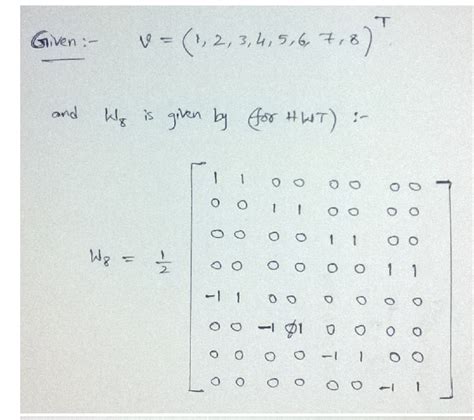 Given :- v = (1, 2, 3, 4, 5, 6, 7, 8)^T
and W₈ is given by (for HWT) :-
W₈ = 1/2
1 1 0 0 0 0 0 0
0 0 1 1 0 0 0 0
0 0 0 0 1 1 0 0
0 0 0 0 0 0 1 1
-1 1 0 0 0 0 0 0
0 0 -1 1 0 0 0 0
0 0 0 0 -1 1 0 0
0 0 0 0 0 0 -1 1